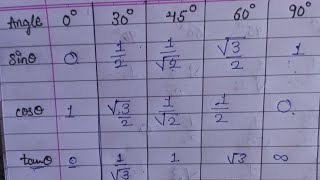 Angle 0° 30° 45° 60° 90°
sinθ 0 1/2 1/√2 √3/2 1
cosθ 1 √3/2 1/√2 1/2 0
tanθ 0 1/√3 1 √3 ∞